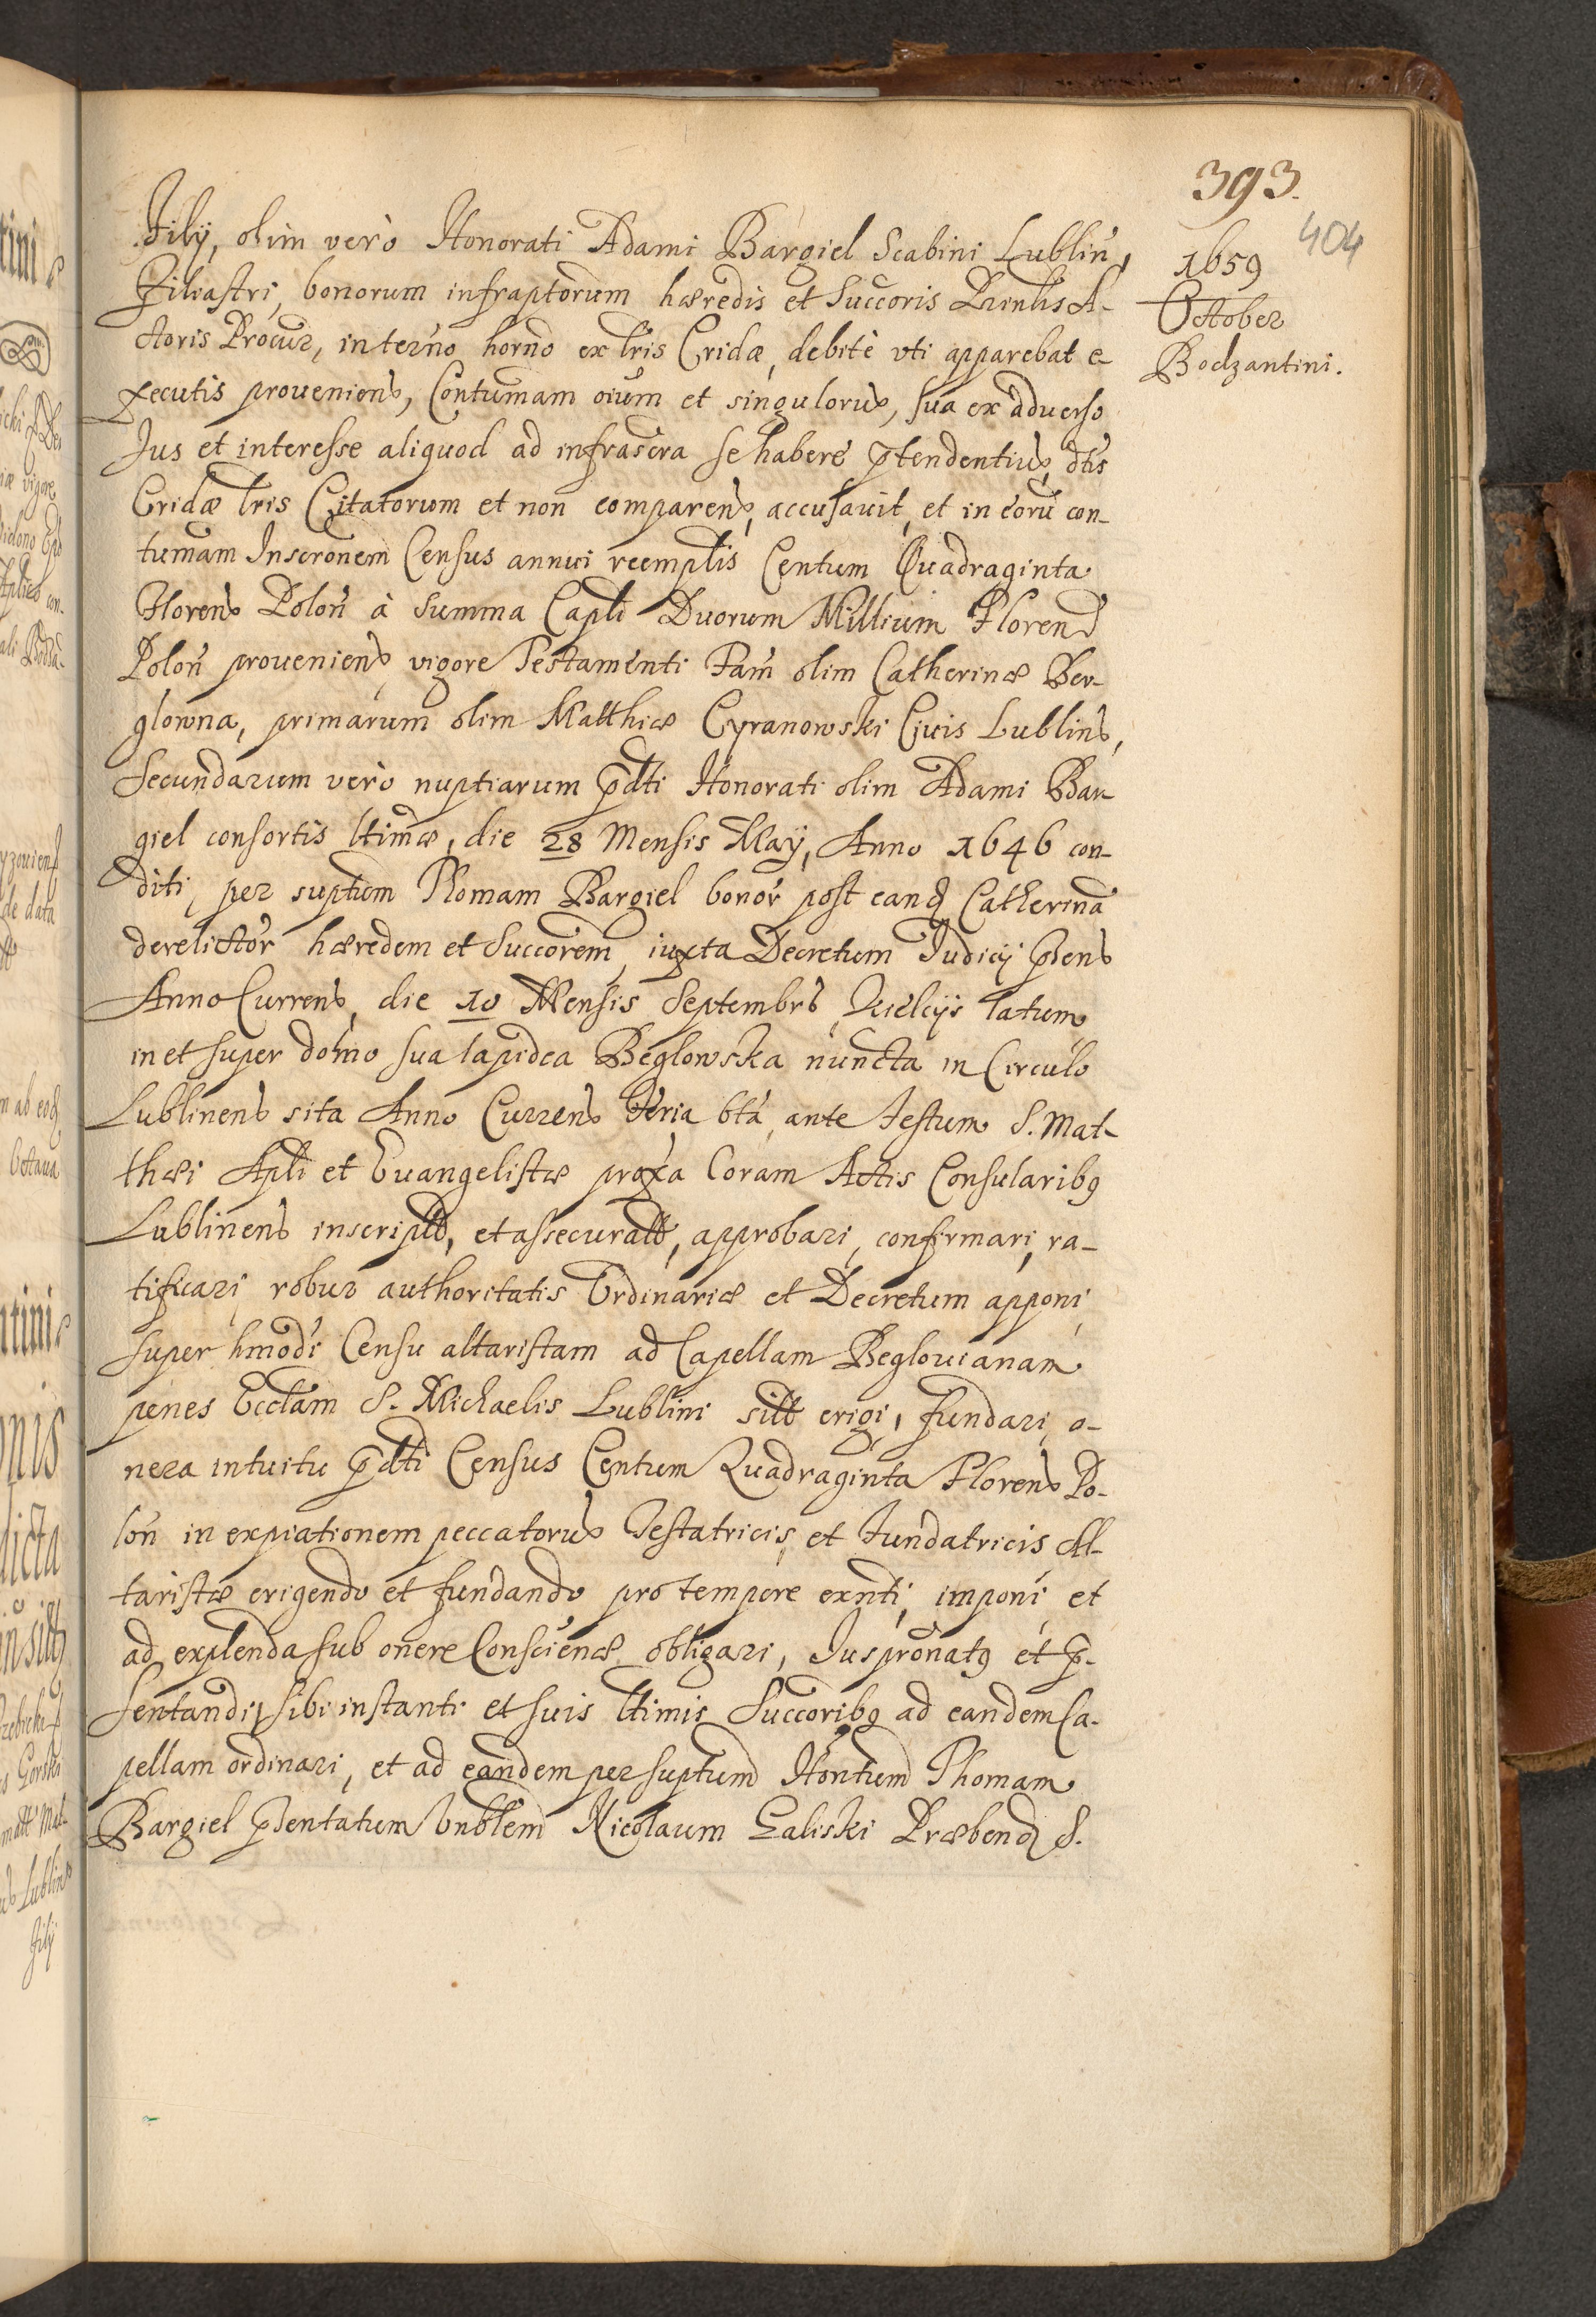 393.
404
1659
October
Bodzantini.
Filÿ, olim verò Honorati Adami Bargiel Scabini Lublin,
Filiastri, bonorum infraptorum hæredis et Succoris Prinlis A-
ctoris Procur, interno horno ex lris Cridæ, debitè vti apparebat e-
xecutis proueniens, Contumam oium et singulorum, sua ex aduerso
Jus et interesse aliquod ad infrascra se habere ptendentium dtis
Cridæ lris Citatorum et non comparens, accusauit, et in eorū con-
tumam Inscronem Census annui reemplis Centum Quadraginta
Florens Polon à Summa Capli Duorum Millium Floren
Polon proueniens vigore Testamenti Fam olim Catherinæ Ber-
glowna, primarum olim Matthiæ Cyranowski Ciuis Lublins,
Secundarum verò nuptiarum pdti Honorati olim Adami Bar-
giel consortis ltimæ, die 28 Mensis Maÿ, Anno 1646 con-
diti, per suptum Thomam Bargiel bonor post eand Catherinā
derelictor hæredem et Succorem, iuxta Decretum Iudicÿ pñens
Anno Currens, die 10 Mensis Septembrs Kielcÿs latum
in et super domo sua lapidea Beglowska nuncta in Circulo
Lublinens sita Anno Currens Feria 6tā ante Festum S. Mat-
thæi Apli et Euangelistæ proxa Coram Actis Consularibq
Lublinens inscriptt, et assecuratt, approbari, confirmari, ra-
tificari, robur authoritatis Ordinariæ et Decretum apponi,
super hmodi Censu altaristam ad Capellam Beglouianam
penes Ecclam S. Michaelis Lublini sitt erigi, fundari, o-
nera intuitu pdti Census Centum Quadraginta Florens Po-
lon in expiationem peccatorum Testatricis, et Fundatricis Al-
taristæ erigendo et fundando pro tempore exnti, imponi et
ad explenda sub onere Conscienæ obligari, Jus pronatq et p-
sentandi, sibi instanti et suis ltimis Succoribq ad eandem Ca-
pellam ordinari, et ad eandem per suptum Hontum Thomam
Bargiel psentatum Vnblem Nicolaum Galiski Præbend S.